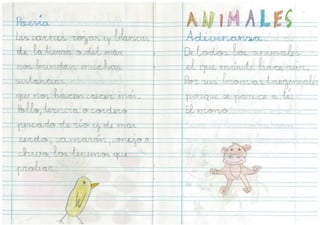 Poesía
Las carnes rojas y blancas
de la tierra o del mar
nos brindan muchas
sustancias
que nos hacen crecer más.
Pollo, ternera o cordero
pescado de río y de mar
cerdo, camarón, conejo o
chivo, los tenemos que
probar.
ANIMALES
Adivinanza
De todos los animales
el que más te hace reír.
Por sus bromas tan geniales
porque se parece a ti.
El mono.